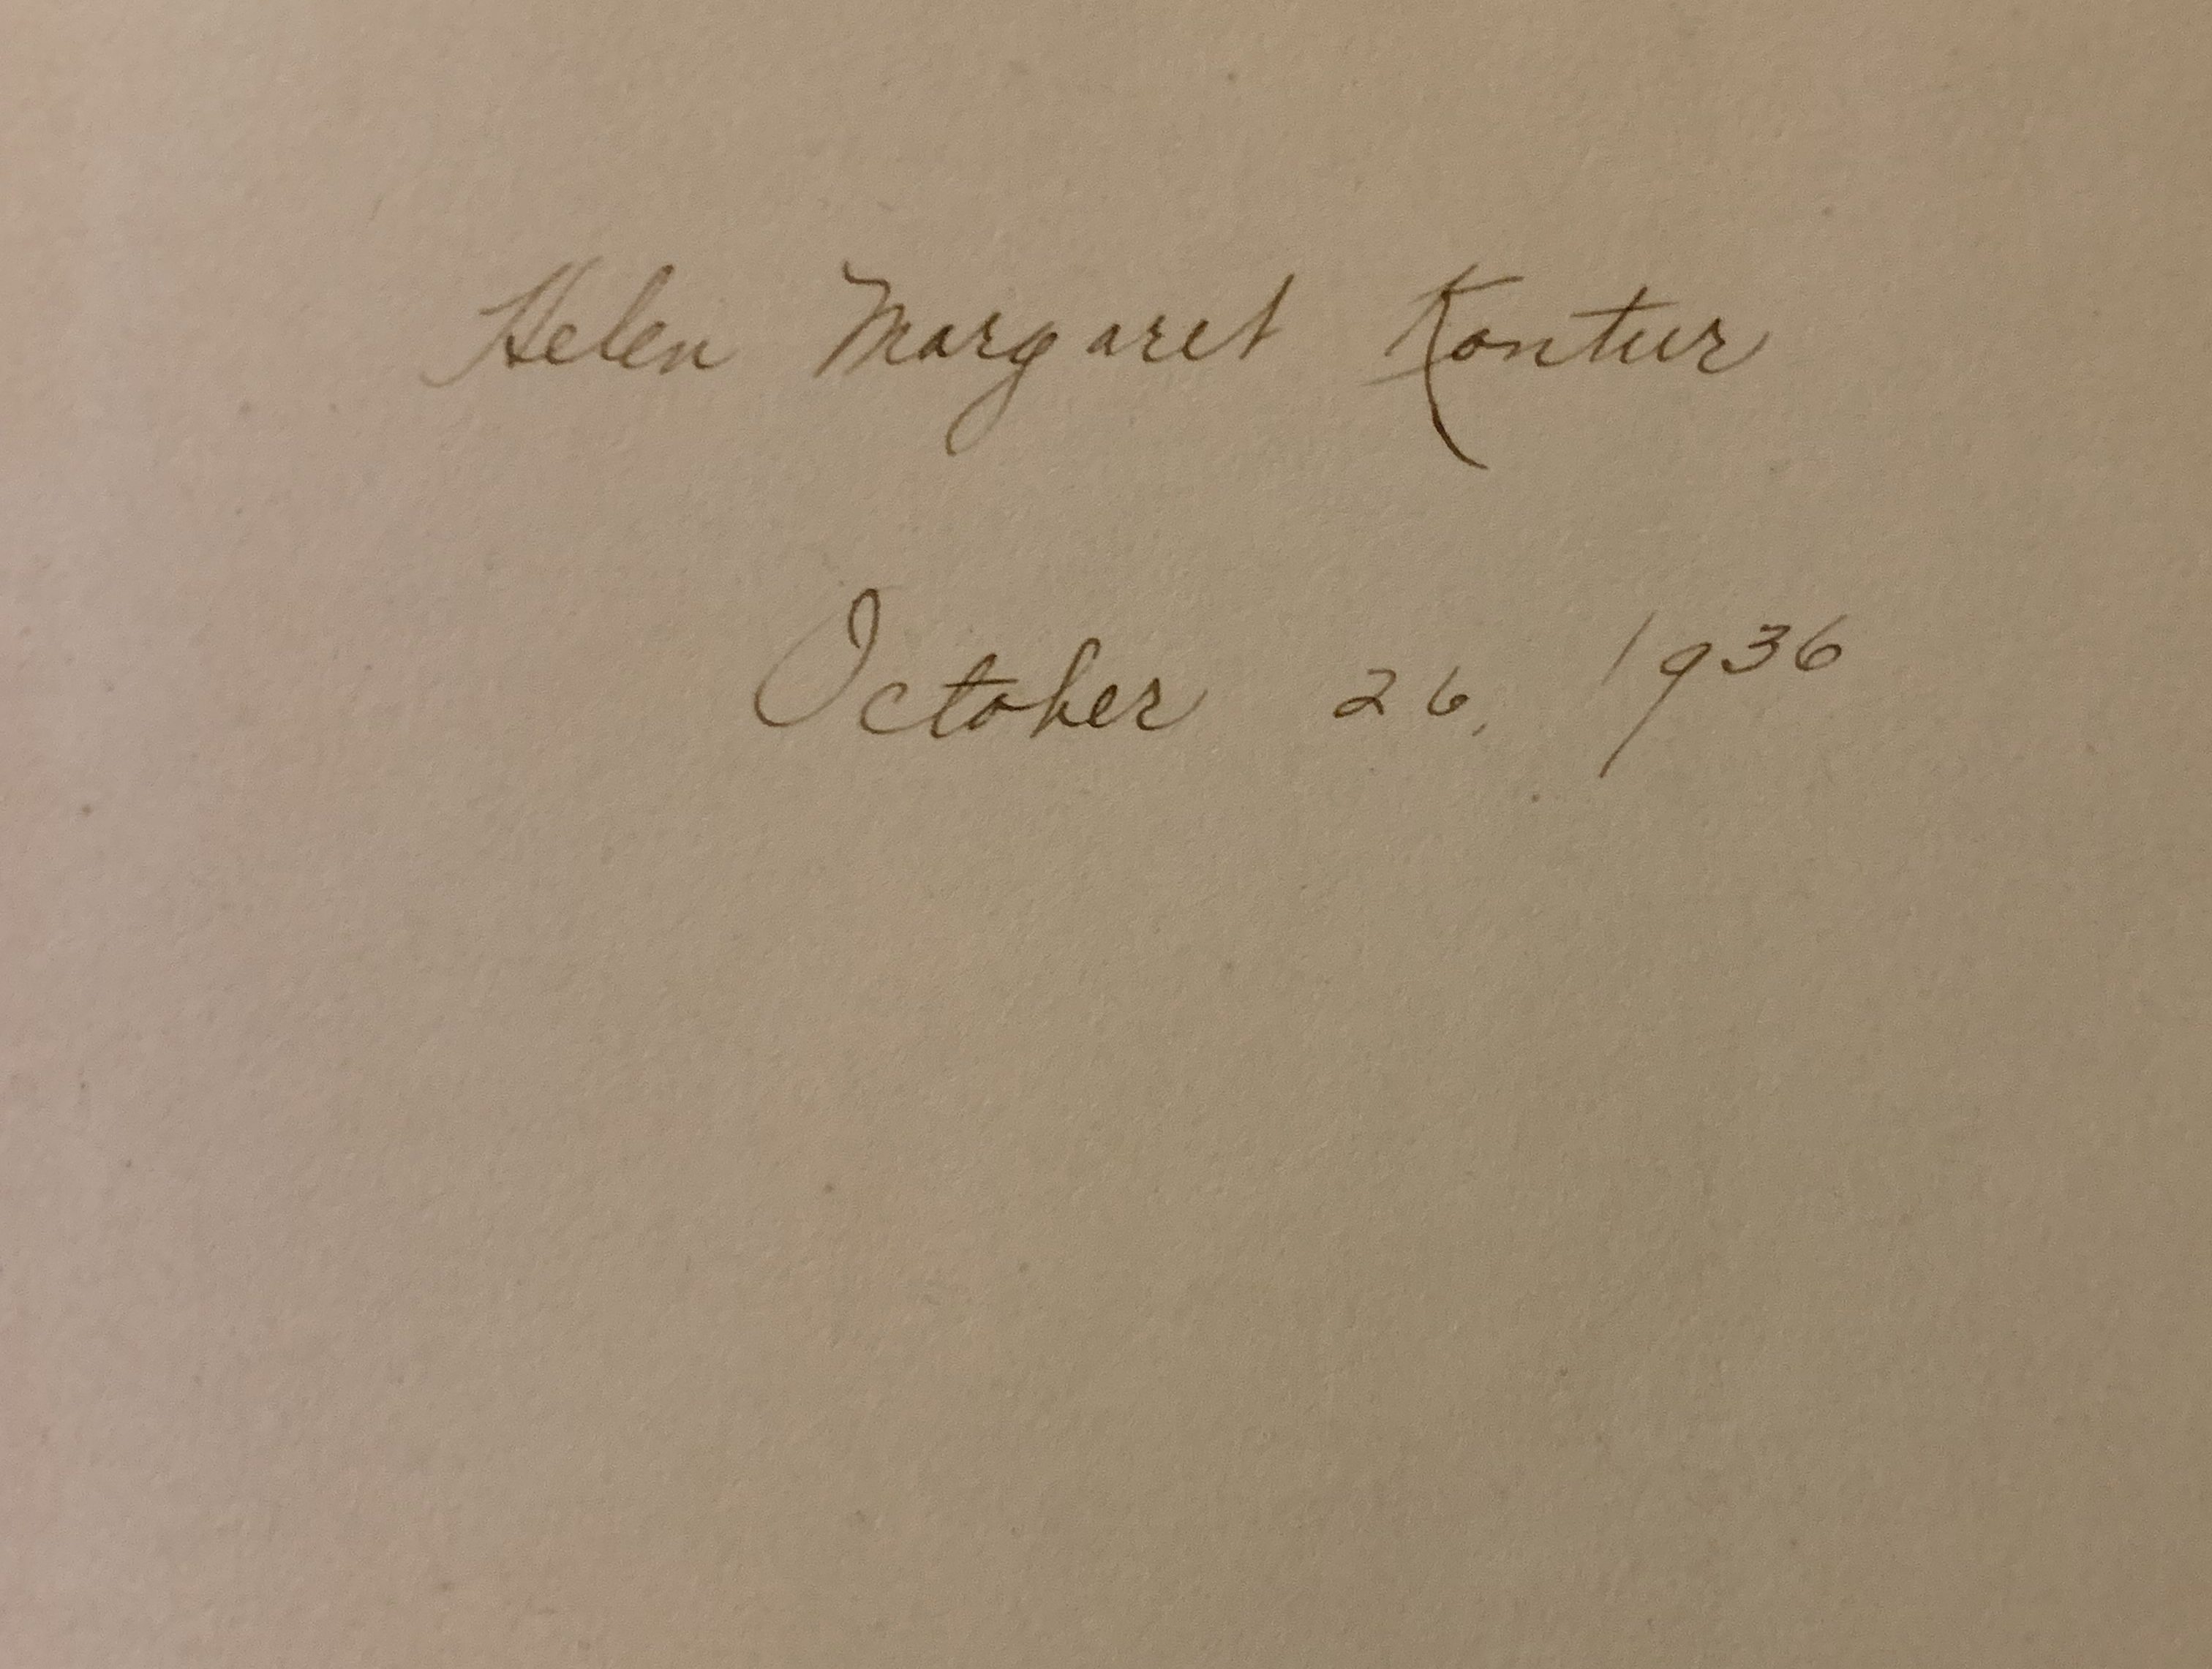 Helen Margaret Kontur
October 26, 1936